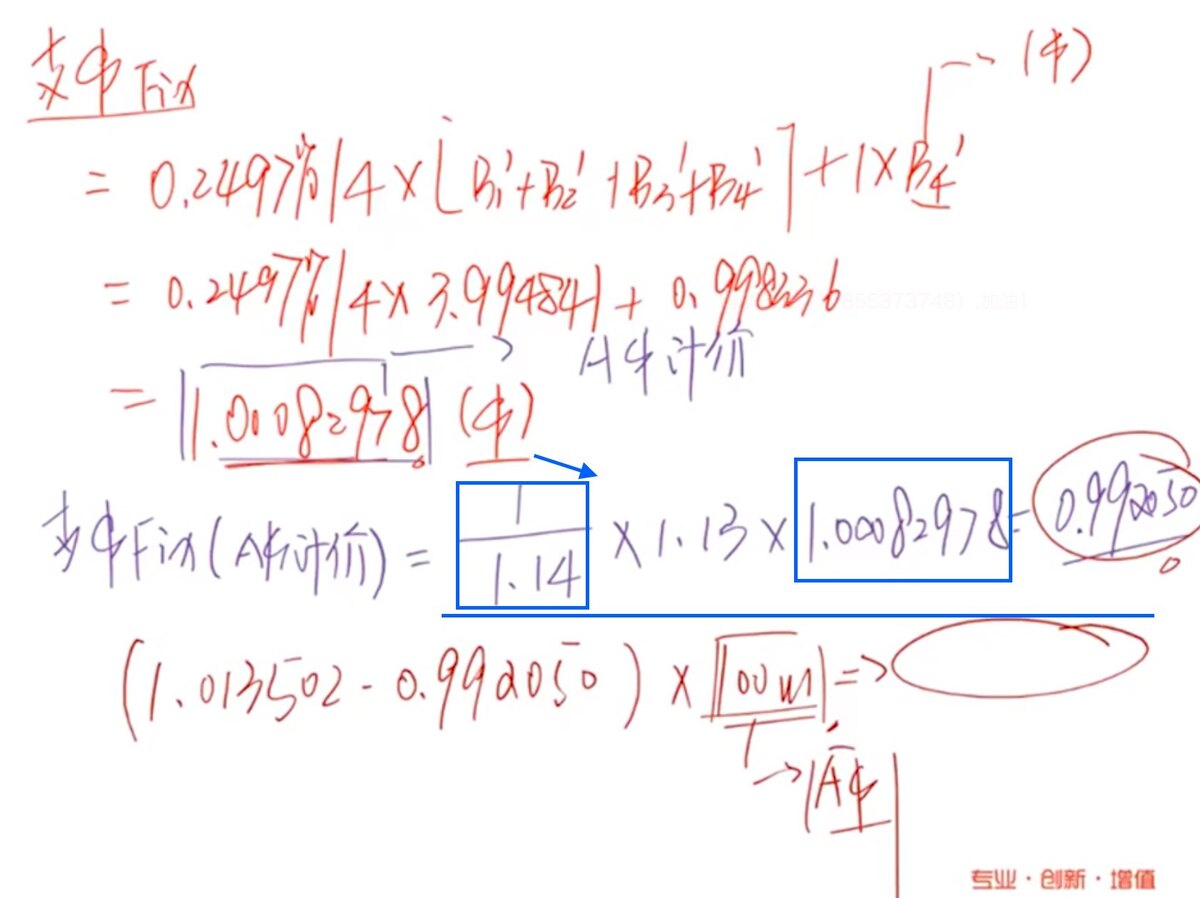 支$ Fix
--> ($)
= 0.2497%/4 × [B1'+B2'+B3'+B4'] + 1×B4'
= 0.2497%/4 × 3.994841 + 0.998336
--> A$计价
= 1.00082978 ($)
支$ Fix (A$计价) = 1/1.14 × 1.13 × 1.00082978 = 0.992050
(1.013502 - 0.992050) × 100m =>
→ A$
专业·创新·增值